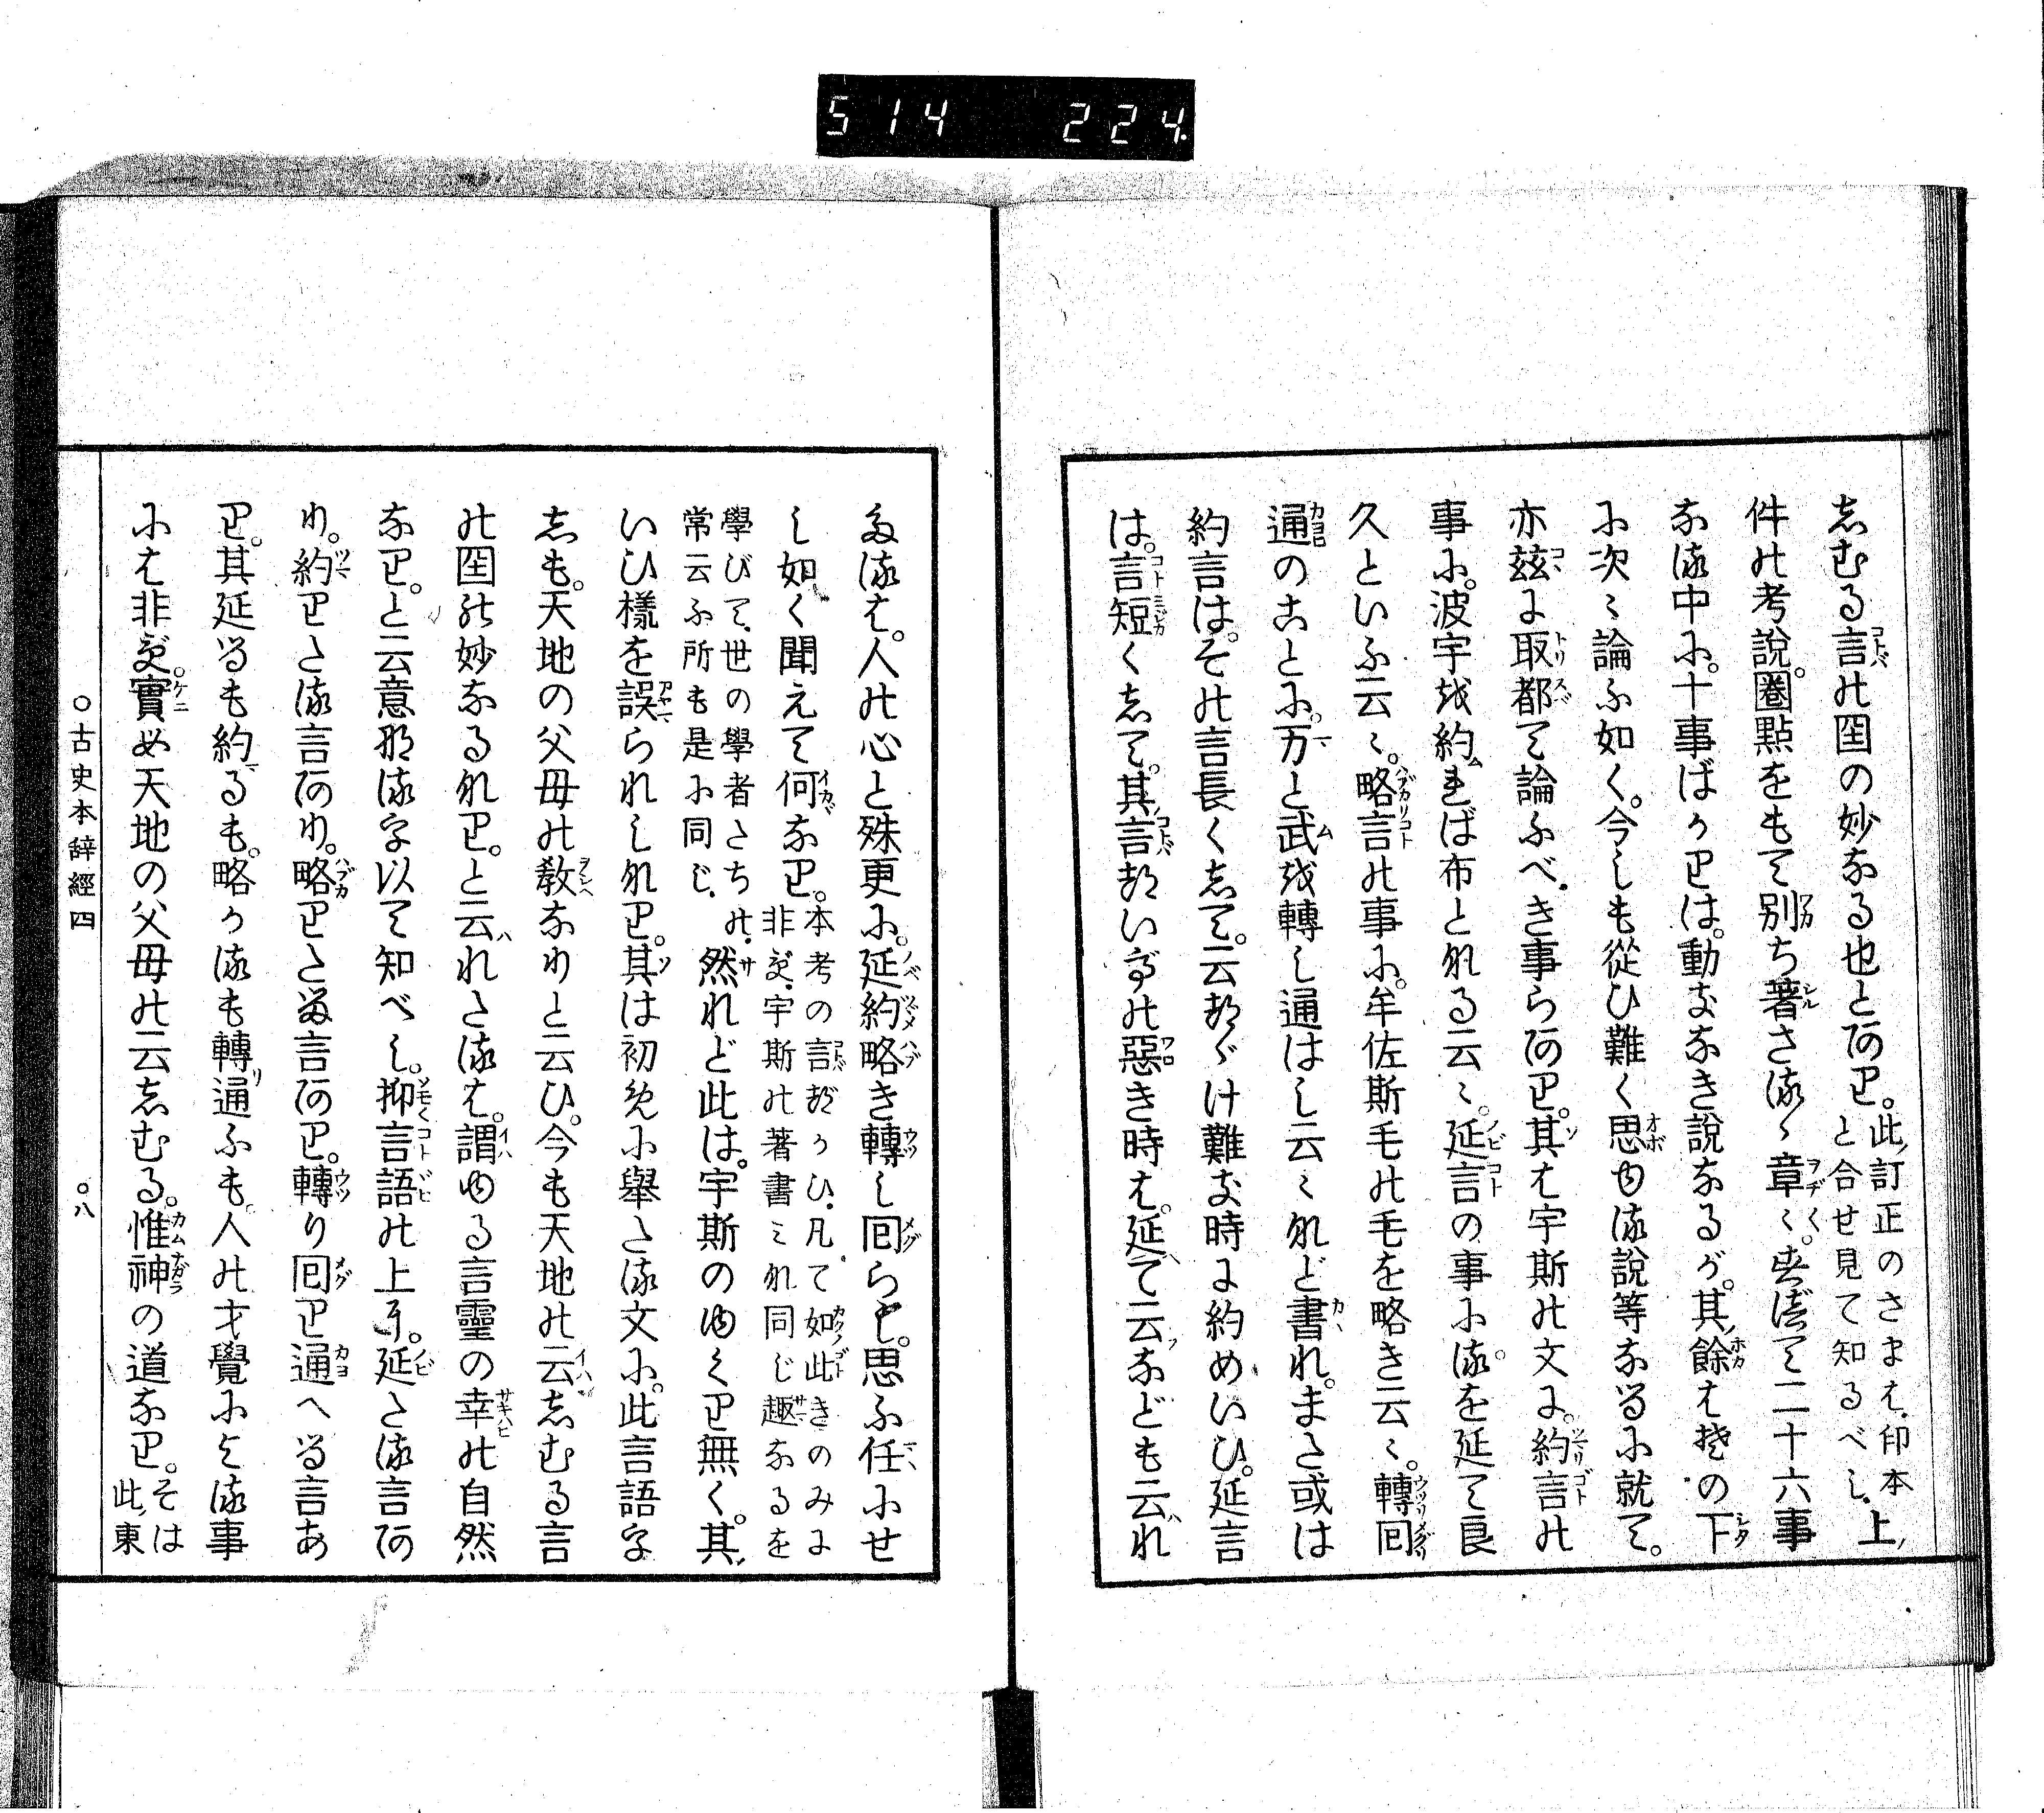 514 224
志むる言の国の妙なる也とあり。此ノ訂正のさまは、印本ノ上ノ
と合せ見て知るべし、
件の考說。圈點をもて別ち著さる〻章〻。すべて二十六事
なる中に。十事ばかりは。動なき說なるが。其ノ餘はその下
に次〻論ふ如く。今しも從ひ難く思ゆる說等なるに就て。
亦玆に取都て論ふべき事らあり。其は宇斯の文に。約言の
事に。波宇を約れば布となる云〻。延言の事に。るを延て良
久といふ云〻。略言の事に。牟佐斯毛の毛を略き云〻。轉回
通のことに。万と武を轉し通はし云〻など書れ。また或は
約言は。その言長くして。云つゞけ難き時に約めいひ。延言
は。言短くして。其言つゞいでの惡き時は。延て云なども云れ
たるは。人の心と殊更に。延約略き轉し回らし。思ふ任にせ
し如く聞えて何なり。本考の言づかひ、凡て如此きのみに
非ず、宇斯の著書みな同じ趣なるを
學びて、世の學者たちの、
常云ふ所も是に同じ、
然れど此は。宇斯のゆくり無く。其ノ
いひ樣を誤られしなり。其は初めに擧たる文に。此言語字
しも。天地の父母の敎なりと云ひ。今も天地の云志むる言
の国の妙なるなり。と云れたるは。謂ゆる言靈の幸の自然
なり。と云意なる字以て知べし。抑言語の上に。延たる言あ
り。約りたる言あり。略りたる言あり。轉り回り通へる言あ
り。其延るも約るも。略かるも轉通ふも。人の才覺による事
には非ず。實は天地の父母の云志むる。惟神の道なり。そは
此ノ東
○古史本辭經四 ○八